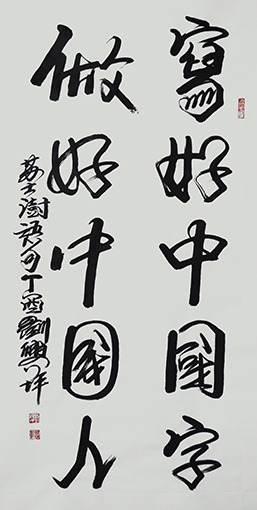 寫好中國字
做好中國人
苏士澍语句丁酉劉興坪